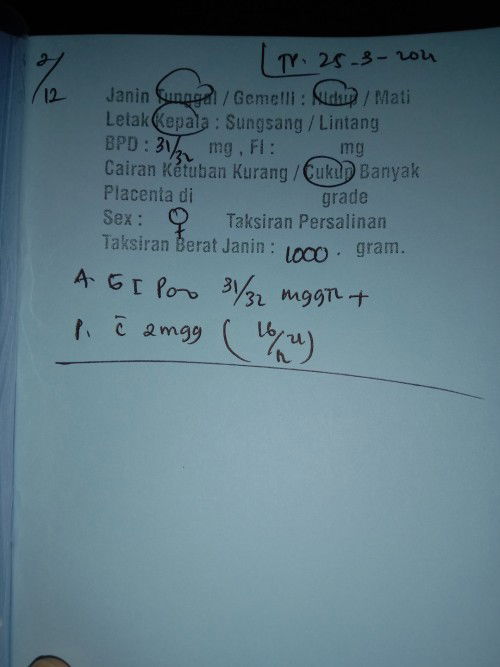 2/12
TP. 25-3-2021
Janin Tunggal / Gemelli : Hidup / Mati
Letak Kepala : Sungsang / Lintang
BPD : 31/32 mg , Fl : mg
Cairan Ketuban Kurang / Cukup Banyak
Placenta di grade
Sex : ♀ Taksiran Persalinan
Taksiran Berat Janin : 1000 . gram.
A. G I P000 31/32 mgg +
P. c̄ 2mgg ( 16/12 )